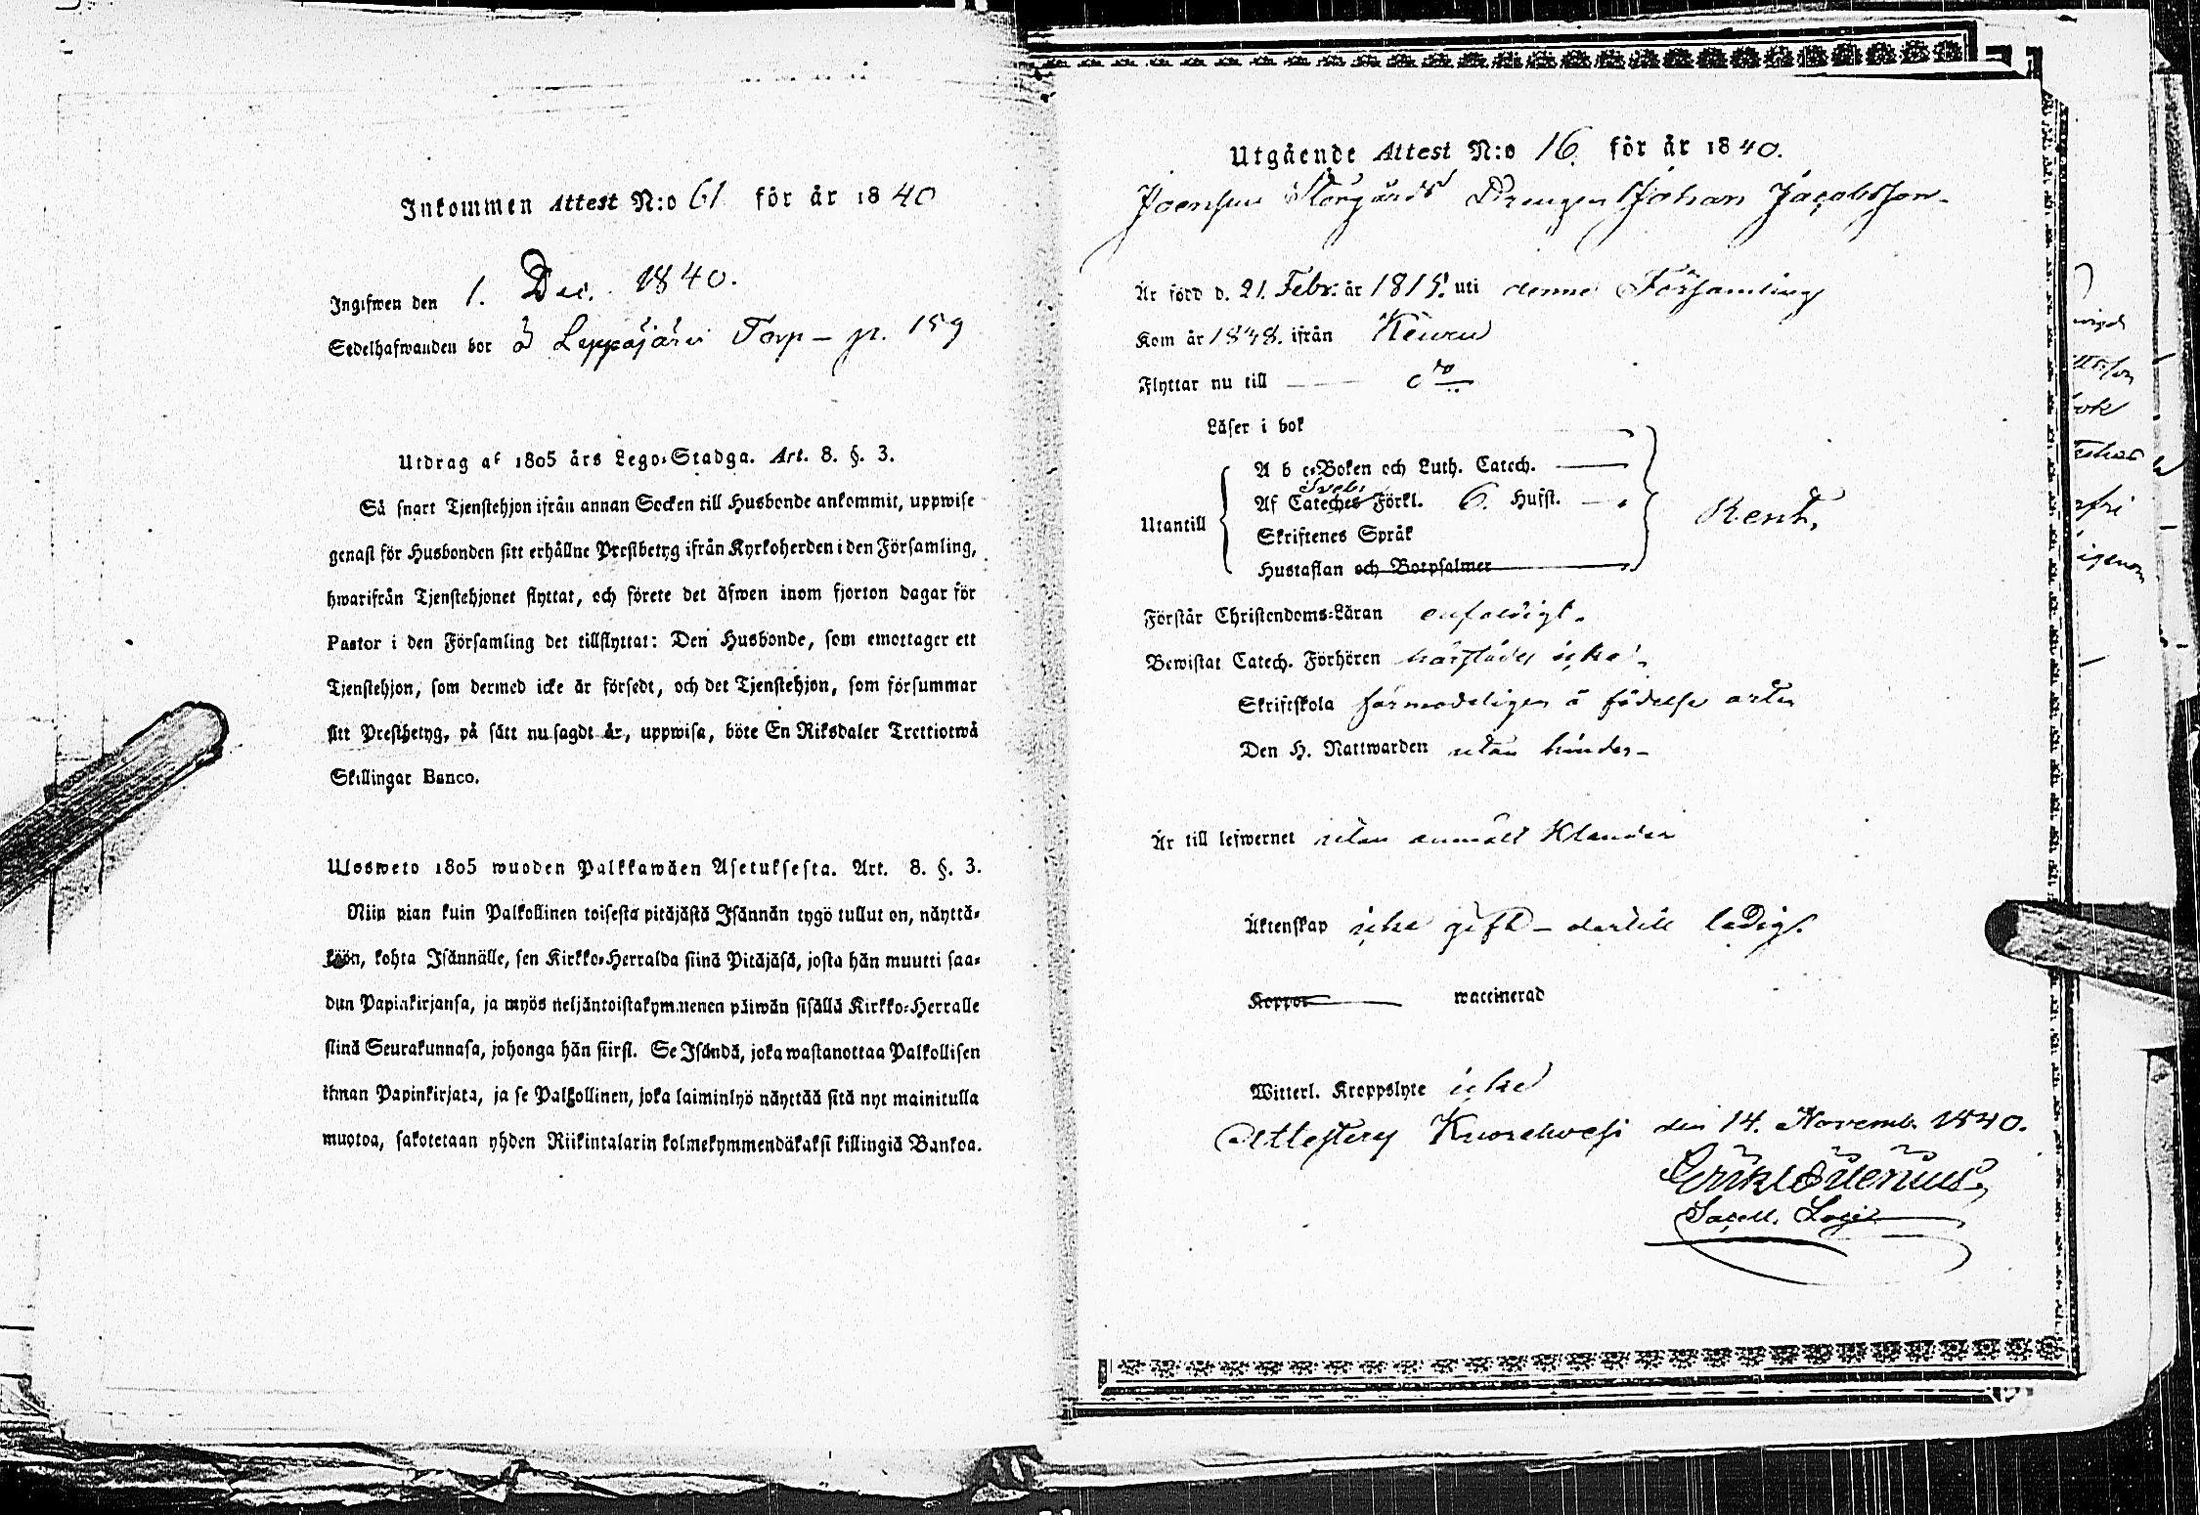 Inkommen Attest N:o 61 för år 1840
Ingifwen den 1. Dec. 1840.
Sedelhafwanden bor å Leppäjärvi Torp – p. 159
Utdrag af 1805 års Lego-Stadga. Art. 8. §. 3.
Så snart Tjenstehjon ifrån annan Socken till Husbonde ankommit, uppwise
genast för Husbonden sitt erhållne Prestbetyg ifrån Kyrkoherden i den Församling,
hwarifrån Tjenstehjonet flyttat, och förete det äfwen inom fjorton dagar för
Pastor i den Församling det tillflyttat: Den Husbonde, som emottager ett
Tjenstehjon, som dermed icke är försedt, och det Tjenstehjon, som försummar
sitt Prestbetyg, på sätt nu sagdt är, uppwisa, böte En Riksdaler Trettiotwå
Skillingar Banco.
Ulosweto 1805 wuoden Palkkawäen Asetuksesta. Art. 8. §. 3.
Niin pian kuin Palkollinen toisesta pitäjästä Isännän tygö tullut on, näyttä-
köön, kohta Isännälle, sen Kirkko-Herralda siinä Pitäjäsä, josta hän muutti saa-
dun Papinkirjansa, ja myös neljäntoistakymmenen päiwän sisällä Kirkko-Herralle
siinä Seurakunnasa, johonga hän siirsi. Se Isändä, joka wastanottaa Palkollisen
ilman Papinkirjata, ja se Palkollinen, joka laiminlyö näyttää sitä nyt mainitulla
muotoa, sakotetaan yhden Riikintalarin kolmekymmendäkaksi killingiä Bankoa.
Utgående Attest N:o 16. för år 1840.
Joensuu Storgårds Drengen Johan Jacobsson
Är född d. 21. Febr. år 1815. uti denne Församling
Kom år 1838. ifrån Keuru
Flyttar nu till do
Läser i bok
A b c-Boken och Luth. Catech.
Sveb.
Af Cateches Förkl. 6. Hufst.
Utantill
Skriftenes Språk
Rent,
Hustaflan och Botpsalmer
Förstår Christendoms-Läran enfaldigt.
Bewistat Catech. Förhören härstädes icke
Skriftskola förmodeligen å födelse orten
Den H. Nattwarden utan hinder
Är till lefwernet utan anmält klander
Äktenskap icke gift – dertill ledig.
Koppor waccinerad
Witterl. Kroppslyte icke
Attesterar Kuorehvesi den 14. Novemb. 1840.
Sacell.